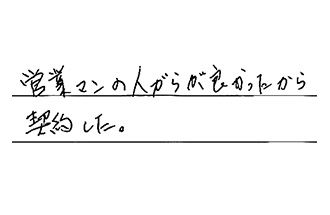 営業マンの人がらが良かったから
契約した。